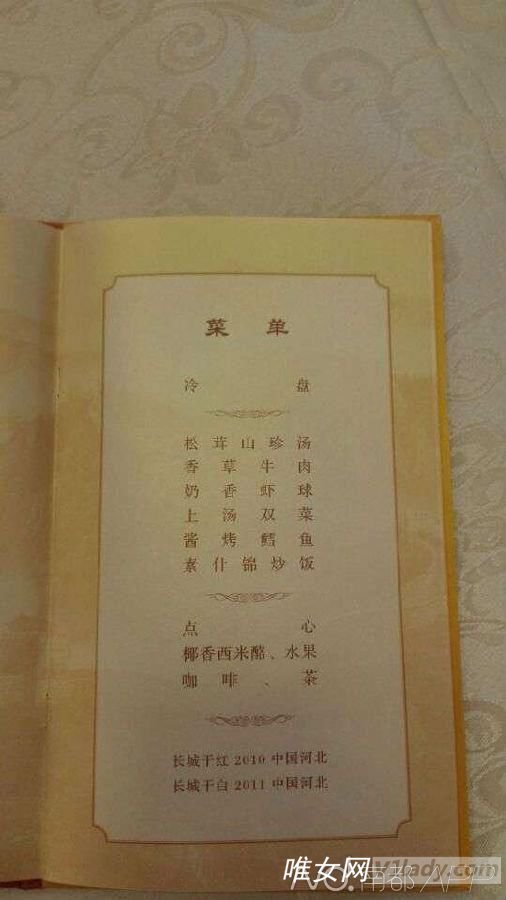 菜单
冷盘
松茸山珍汤
香草牛肉
奶香虾球
上汤双菜
酱烤鳕鱼
素什锦炒饭
点心
椰香西米酪、水果
咖啡、茶
长城干红 2010 中国河北
长城干白 2011 中国河北
唯女网 V1lady.com
NO.南都